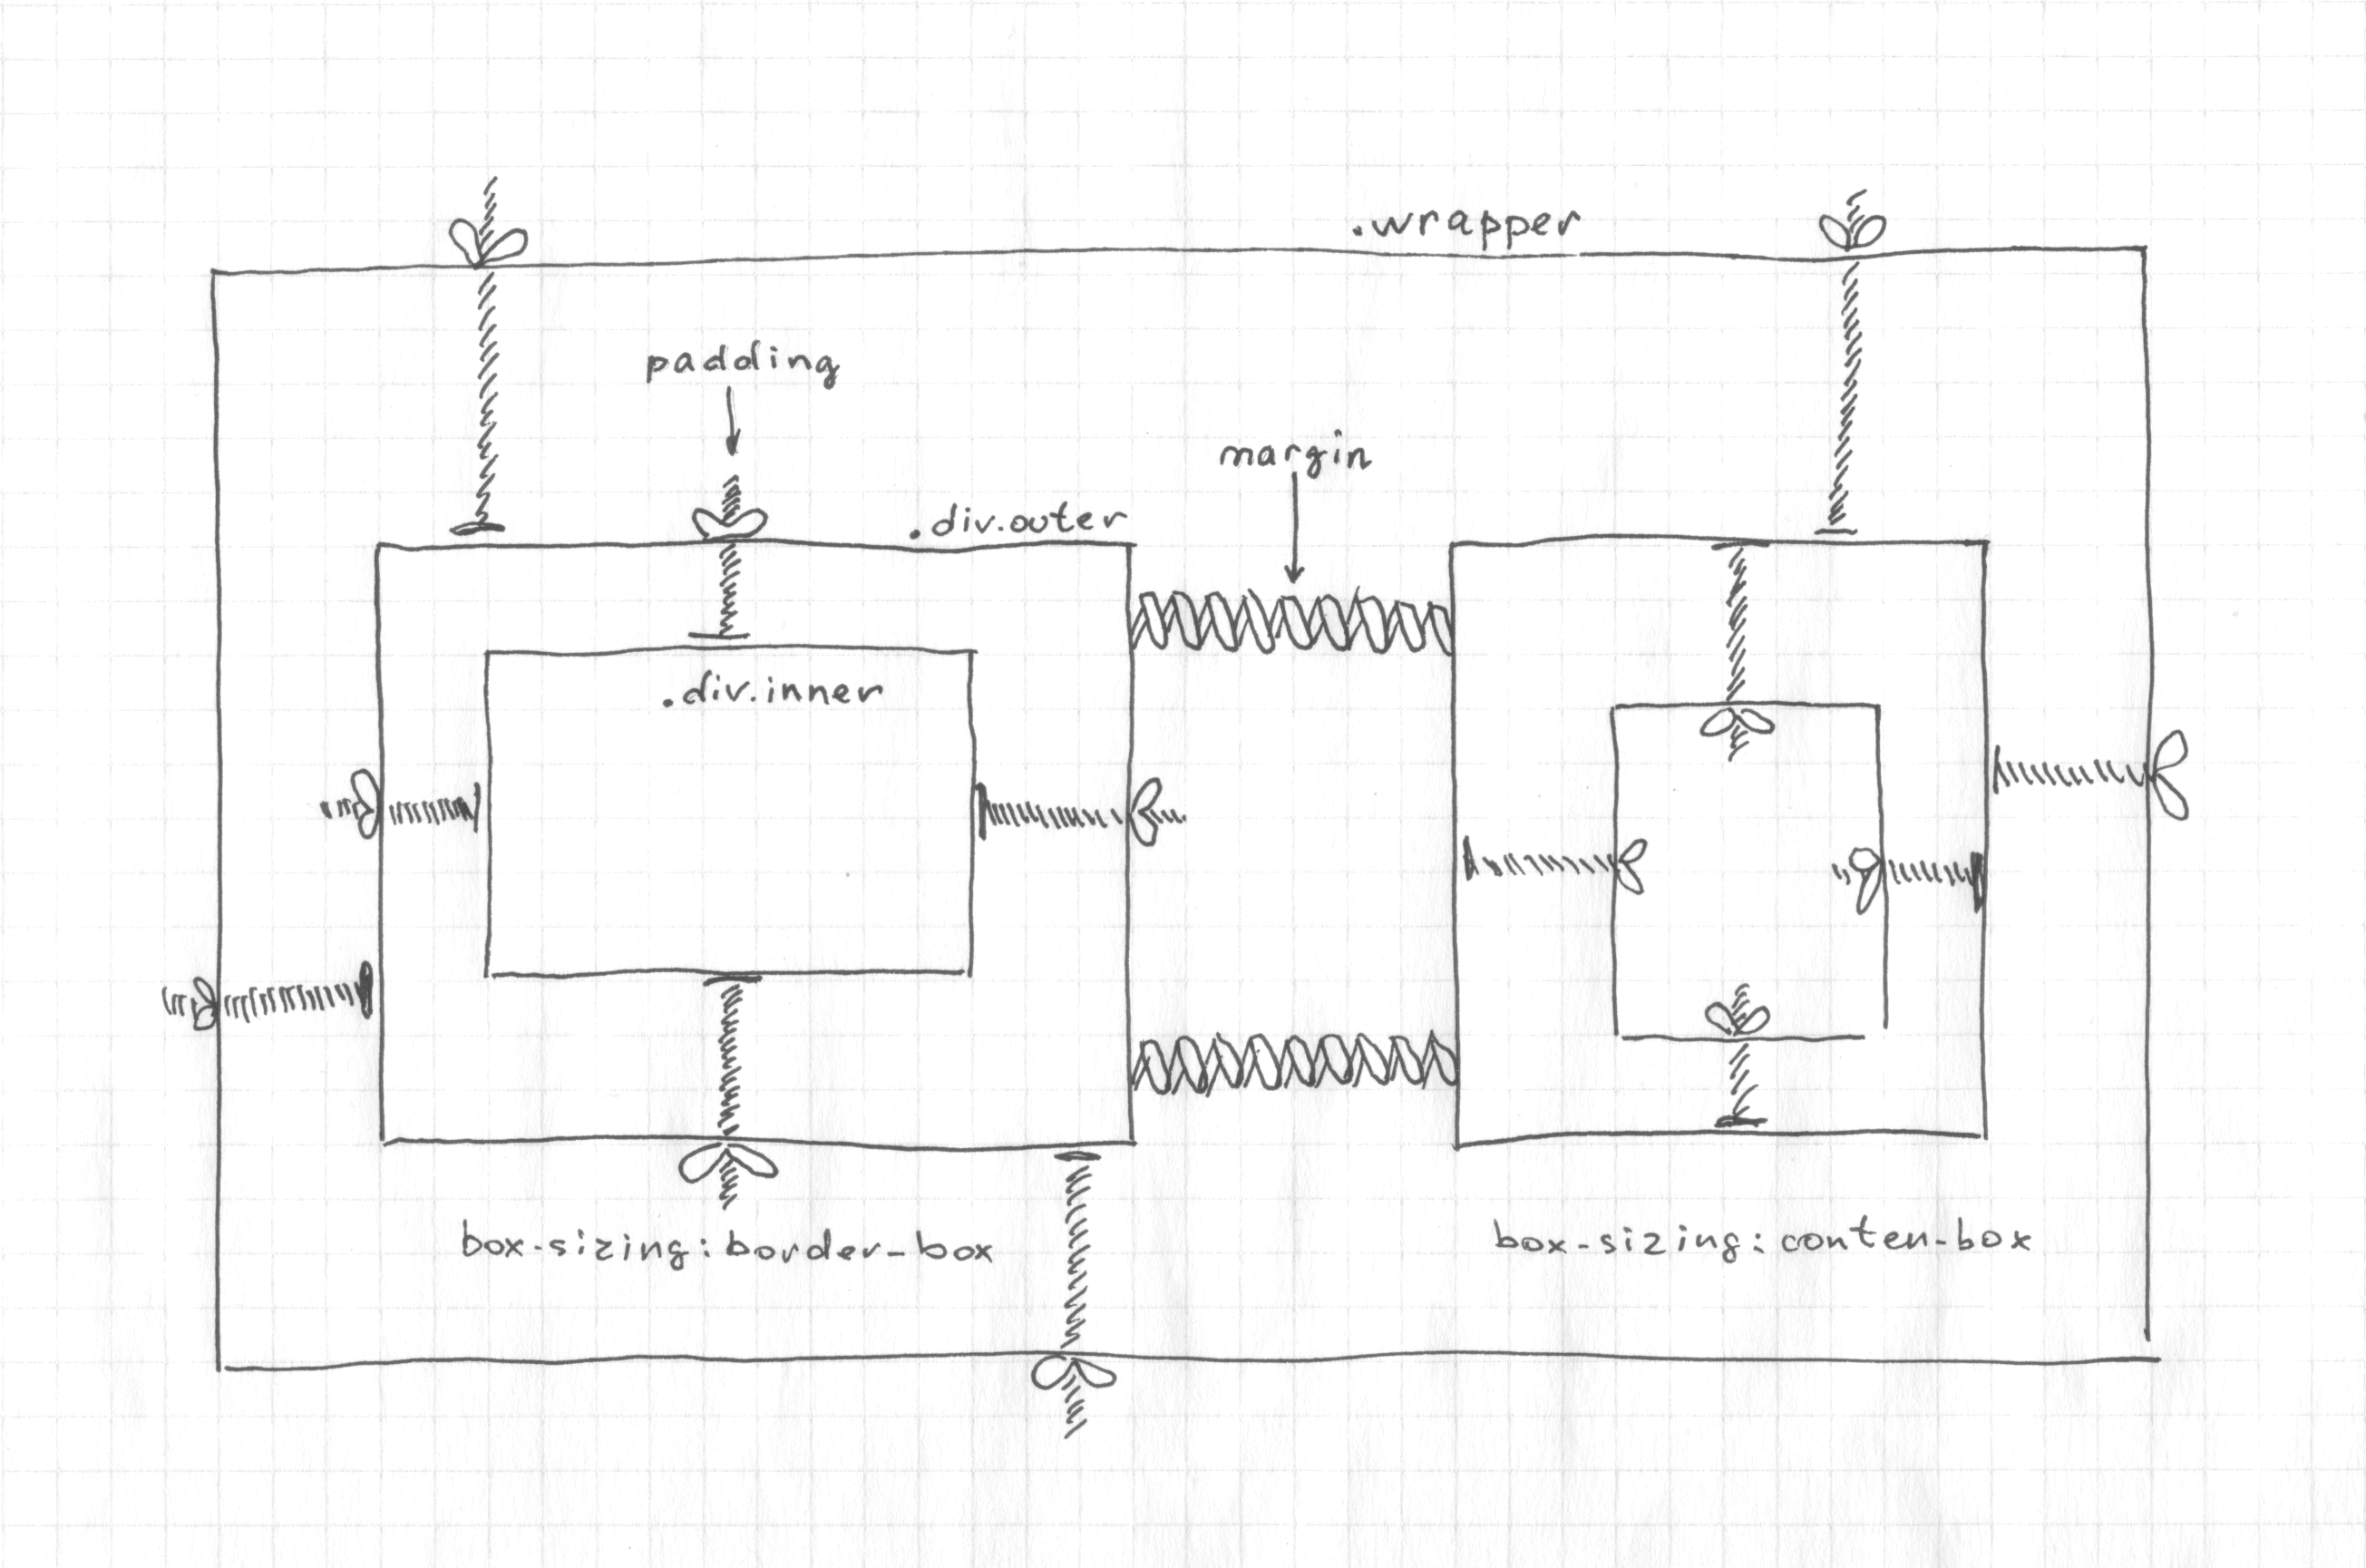 .wrapper
padding
margin
.div.outer
.div.inner
box-sizing: border-box
box-sizing: conten-box